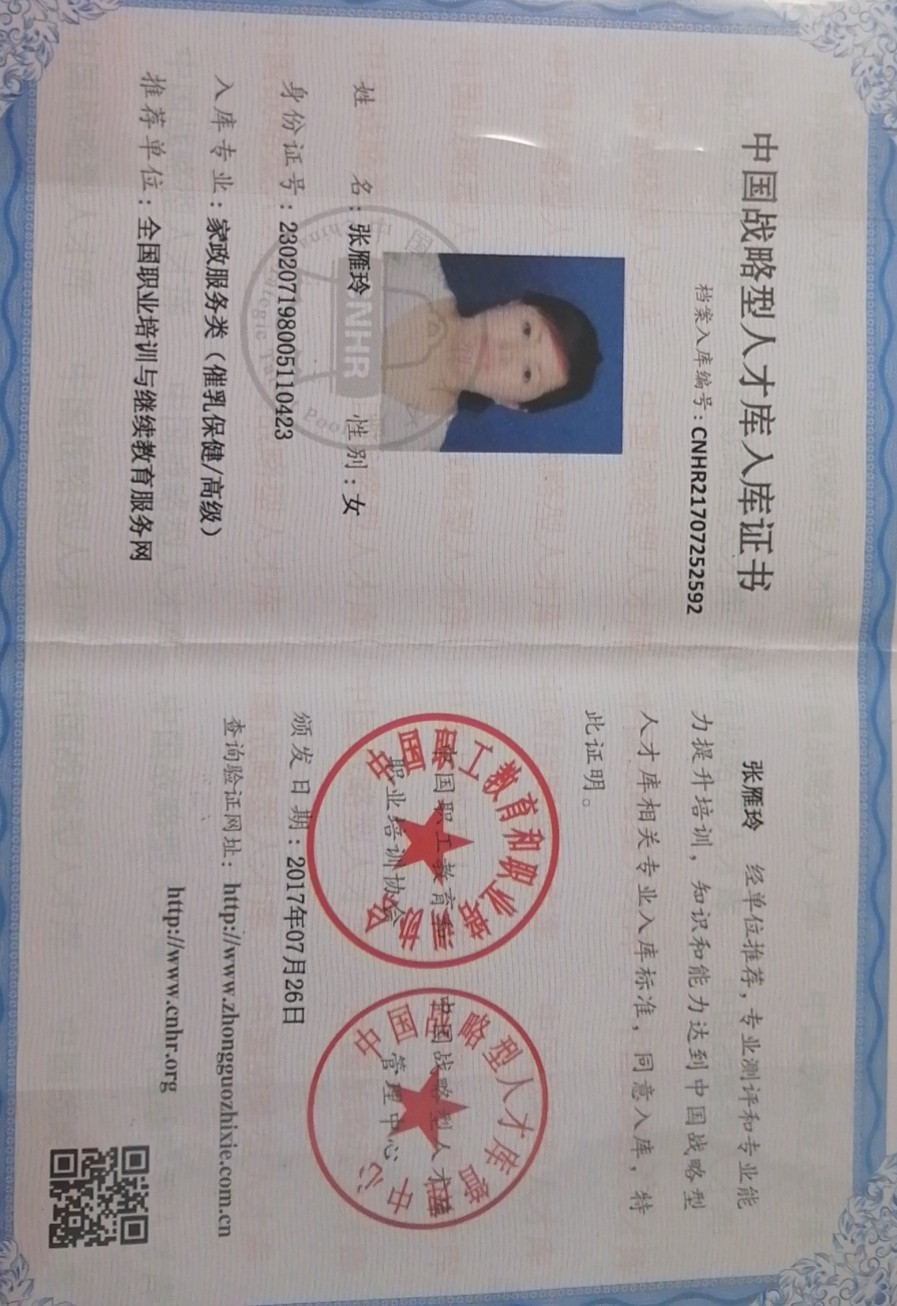 中国战略型人才库入库证书
档案入库编号：CNHR21707252592
姓 名：张雁玲 性别：女
身份证号：230207198005110423
入库专业：家政服务类（催乳保健/高级）
推荐单位：全国职业培训与继续教育服务网
CNHR
张雁玲 经单位推荐，专业测评和专业能
力提升培训，知识和能力达到中国战略型
人才库相关专业入库标准，同意入库，特
此证明。
中国职工教育和
职业培训协会
中国职工教育和职业培训协会
中国战略型人才库
管理中心
中国战略型人才库管理中心
颁发日期：2017年07月26日
查询验证网址：http://www.zhongguozhixie.com.cn
http://www.cnhr.org